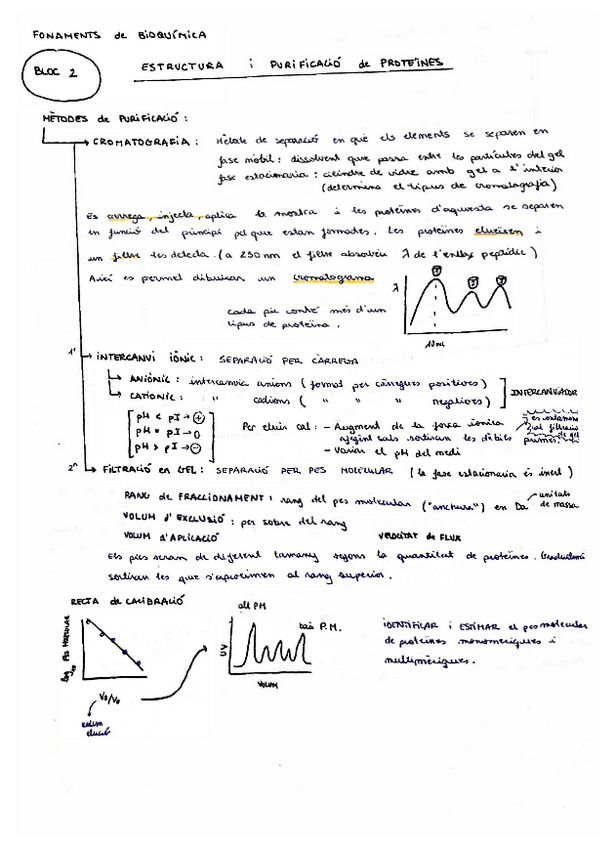 FONAMENTS de BIOQUÍMICA
BLOC 2
ESTRUCTURA i PURIFICACIÓ de PROTEÏNES
MÈTODES de PURIFICACIÓ :
CROMATOGRAFIA : Mètode de separació en què els elements se separen en
fase mòbil : dissolvent que passa entre les partícules del gel
fase estacionaria : cilindre de vidre amb gel a l'interior
(determina el tipus de cromatografia)
Es carrega, injecta, aplica la mostra i les proteïnes d'aquesta se separen
en funció del principi pel que estan formades. Les proteïnes elueixen i
un filtre les detecta. (a 250nm el filtre absorbeix λ de l'enllaç peptídic)
Així es permet dibuixar un cromatograma
cada pic conté més d'un
tipus de proteïna.
λ
10mL
1r INTERCANVI IÒNIC : SEPARACIÓ PER CÀRREGA
ANIÒNIC : intercanvia anions (format per càrregues positives)
CATIÒNIC : " cations ( " " " negatives)
INTERCANVIADOR
pH < pI → +
pH = pI → 0
pH > pI → -
Per eluir cal : - Augment de la força iònica
afegint sals sortiran les dèbils primer.
- Variar el pH del medi
al filtració
de gel
2n FILTRACIÓ en GEL : SEPARACIÓ PER PES MOLECULAR (la fase estacionaria és inert)
RANG de FRACCIONAMENT : rang del pes molecular ("anchura") en Da
unitats
de massa
VOLUM d'EXCLUSIÓ : per sobre del rang
VOLUM d'APLICACIÓ
VELOCITAT de FLUX
Els pics seran de diferent tamany segons la quantitat de proteïnes. Gradualment
sortiran les que s'aproximen al rang superior.
RECTA de CALIBRACIÓ
log10 PES MOLECULAR
Ve/Vo
volum
elució
alt PM
baix P.M.
UV
VOLUM
IDENTIFICAR i ESTIMAR el pes molecular
de proteïnes monomèriques i
multimèriques.